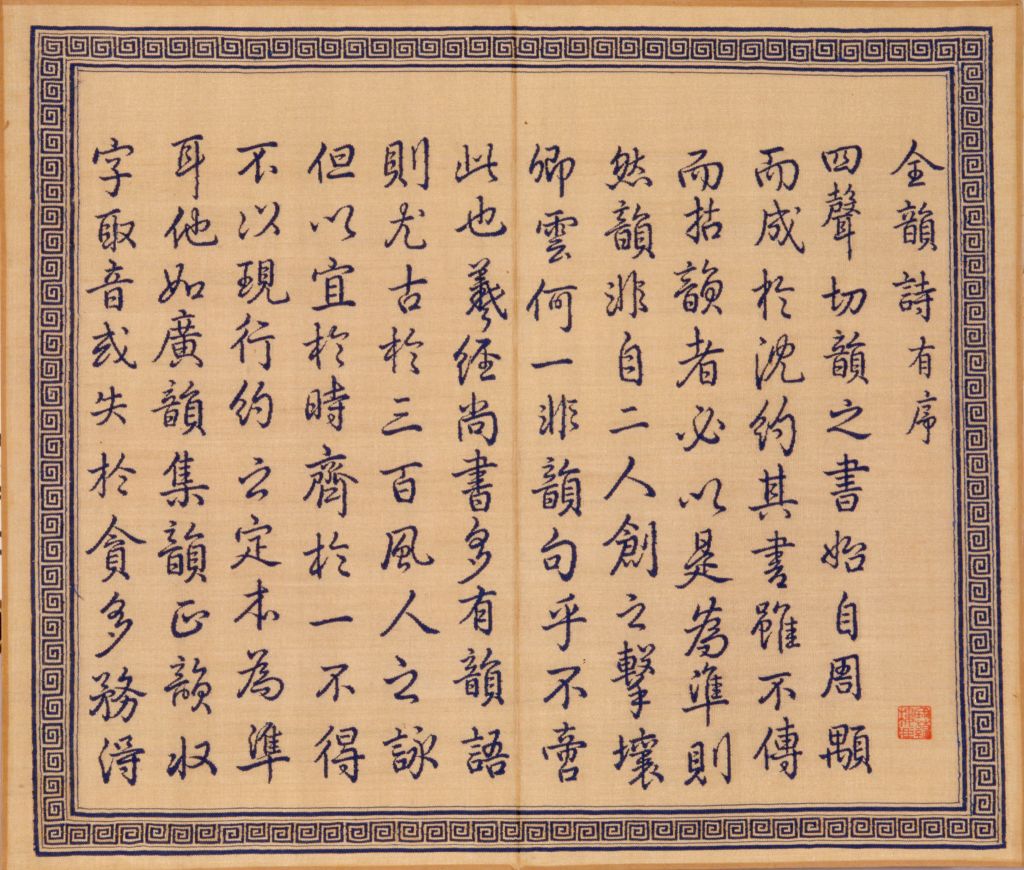 全韻詩有序
四聲切韻之書始自周顒
而成於沈約其書雖不傳
而拈韻者必以是為準則
然韻非自二人創之擊壤
卿雲何一非韻句乎不啻
此也羲經尚書多有韻語
則尤古於三百風人之詠
但以宜於時齊於一不得
不以現行約之定本為準
耳他如廣韻集韻正韻收
字取音或失於貪多務得